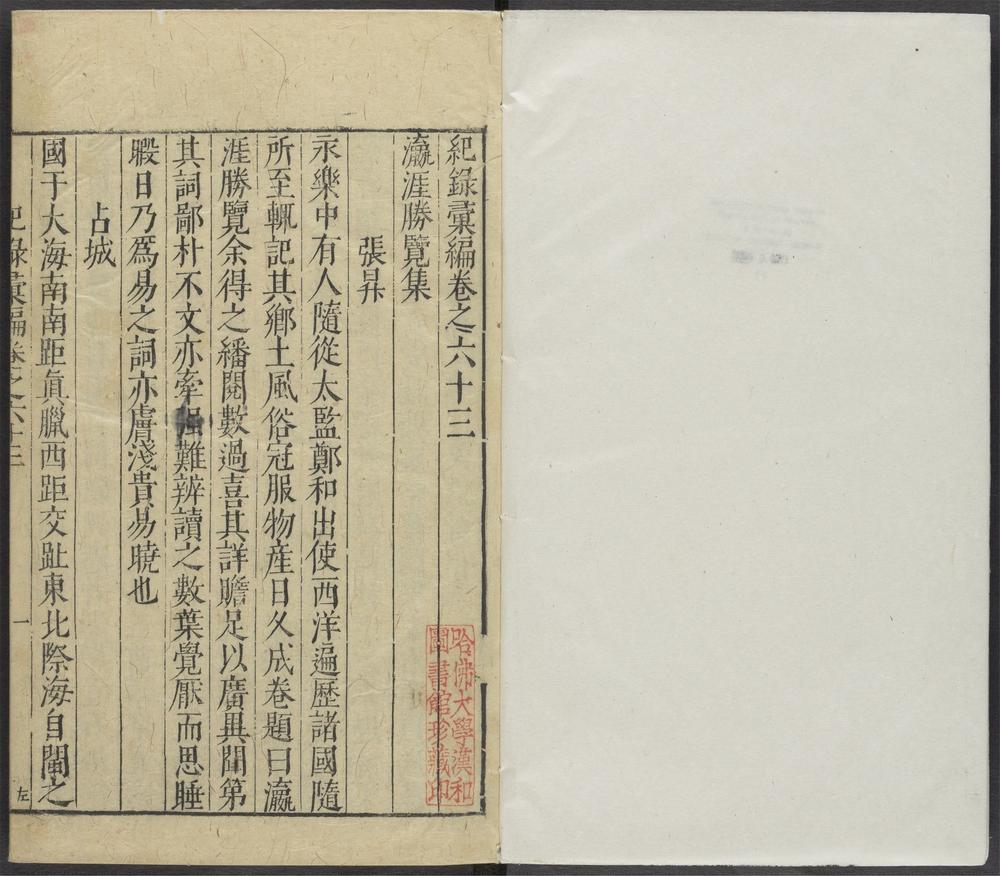 紀錄彙編卷之六十三
瀛涯勝覽集
張昇
永樂中有人隨從太監鄭和出使西洋遍歷諸國隨
所至輒記其鄉土風俗冠服物產日久成卷題曰瀛
涯勝覽余得之繙閱數過喜其詳贍足以廣異聞第
其詞鄙朴不文亦牽强難辨讀之數葉覺厭而思睡
暇日乃爲易之詞亦膚淺貴易曉也
占城
國于大海南南距眞臘西距交趾東北際海自閩之
紀錄彙編卷之六十三
一
左
哈佛大學漢和
圖書館珍藏印